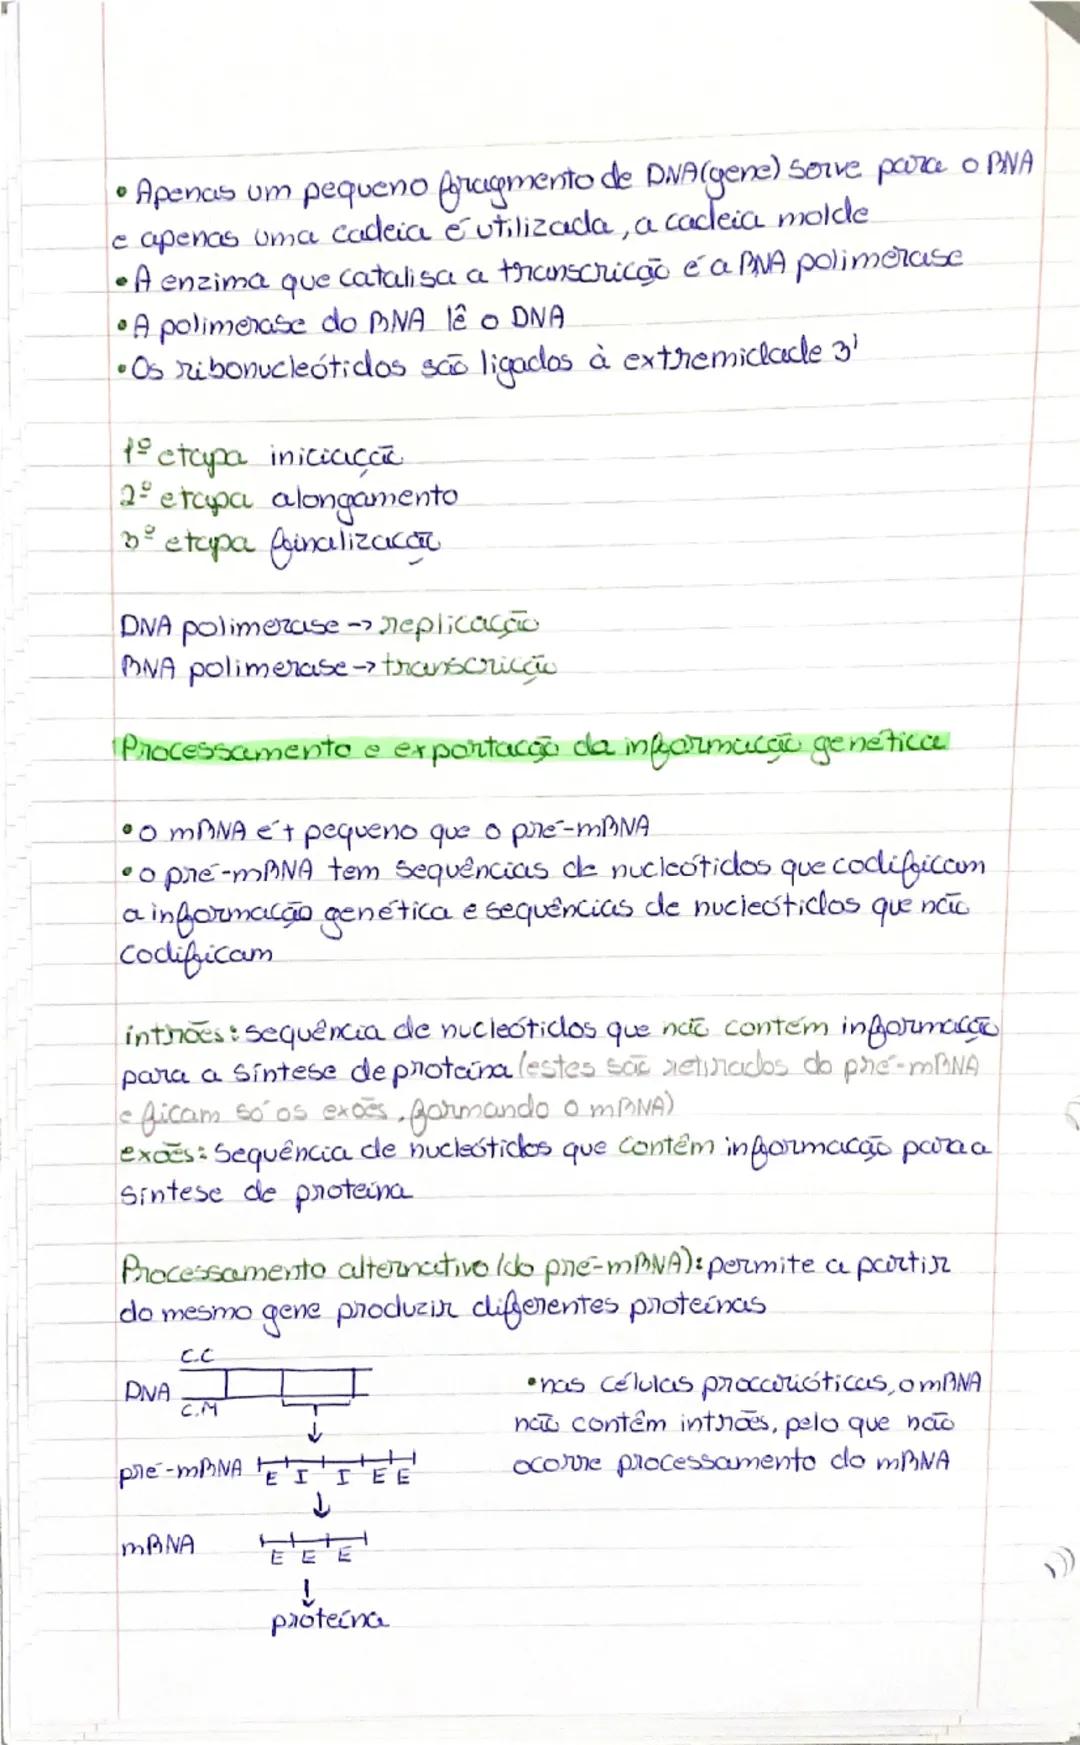 • Apenas um pequeno fragmento de DNA (gene) serve para o RNA
e apenas uma cadeia é utilizada, a cadeia molde
• A enzima que catalisa a transcrição é a RNA polimerase
• A polimerase do RNA lê o DNA
• Os ribonucleótidos são ligados à extremidade 3'
1º etapa iniciação
2º etapa alongamento
3º etapa finalização
DNA polimerase -> replicação
RNA polimerase -> transcrição
Processamento e exportação da informação genética
• o mRNA é + pequeno que o pré-mRNA
• o pré-mRNA tem sequências de nucleótidos que codificam
a informação genética e sequências de nucleótidos que não
codificam
intrões: sequência de nucleótidos que não contém informação
para a síntese de proteína (estes são retirados do pré-mRNA
e ficam só os exões, formando o mRNA)
exões: Sequência de nucleótidos que contêm informação para a
síntese de proteína
Processamento alternativo (do pré-mRNA): permite a partir
do mesmo gene produzir diferentes proteínas
C.C
DNA
C.M
pré-mRNA E I I E E
mRNA E E E
proteína
• nas células procarióticas, o mRNA
não contêm intrões, pelo que não
ocorre processamento do mRNA